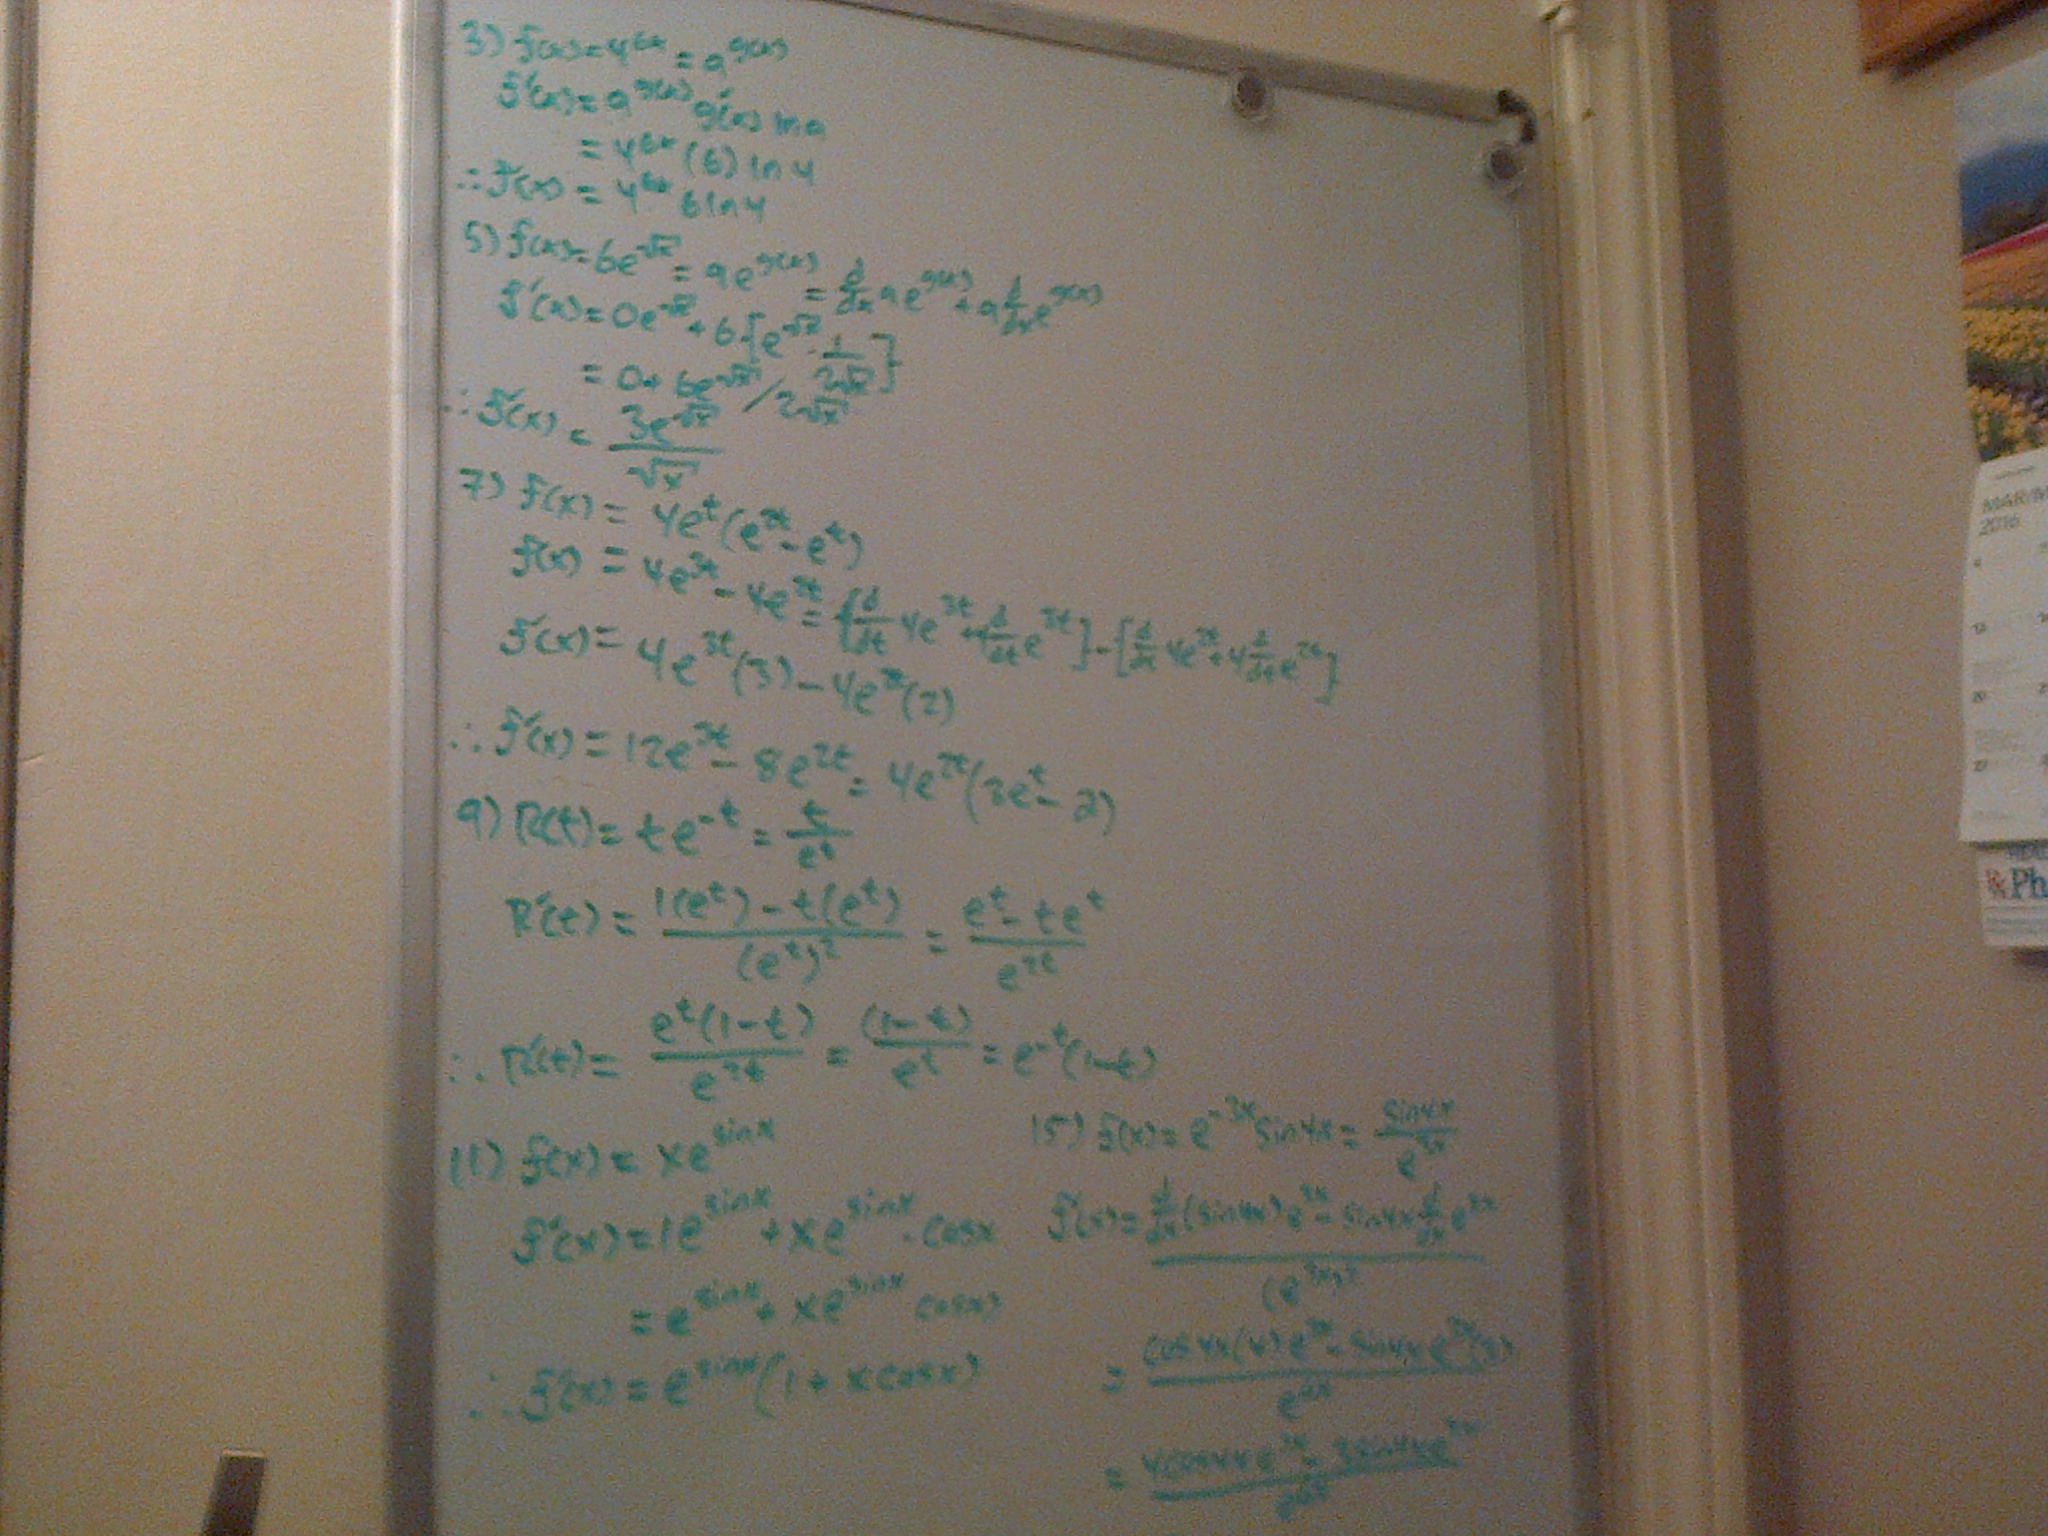 3) f(x)=4^6x = a^g(x)
f'(x)= a^g(x) g'(x) ln a
= 4^6x (6) ln 4
∴ f'(x) = 4^6x 6 ln 4
5) f(x)= 6e^√x = a e^g(x) = d/dx a e^g(x) + a d/dx e^g(x)
f'(x)= 0e^√x + 6[e^√x · 1/2√x]
= 0 + 6e^√x / 2√x
∴ f'(x) = 3e^√x / √x
7) f(x) = 4e^t (e^2t - e^t)
f(x) = 4e^3t - 4e^2t = [d/dt 4e^3t + 4 d/dt e^3t] - [d/dt 4e^2t + 4 d/dt e^2t]
f'(x) = 4e^3t (3) - 4e^2t (2)
∴ f'(x) = 12e^3t - 8e^2t = 4e^2t (3e^t - 2)
9) R(t) = te^-t = t/e^t
R'(t) = 1(e^t) - t(e^t) / (e^t)^2 = e^t - te^t / e^2t
∴ R'(t) = e^t(1-t) / e^2t = (1-t) / e^t = e^-t (1-t)
11) f(x) = xe^sinx
f'(x) = 1e^sinx + xe^sinx · cosx
= e^sinx + xe^sinx cosx)
∴ f'(x) = e^sinx (1 + xcosx)
15) f(x) = e^-3x sin4x = sin4x / e^3x
f'(x) = d/dx (sin4x) e^3x - sin4x d/dx e^3x / (e^3x)^2
= cos4x(4) e^3x - sin4x e^3x (3) / e^6x
= 4cos4x e^3x - 3sin4x e^3x / e^6x
MAR/M
2016
Ph